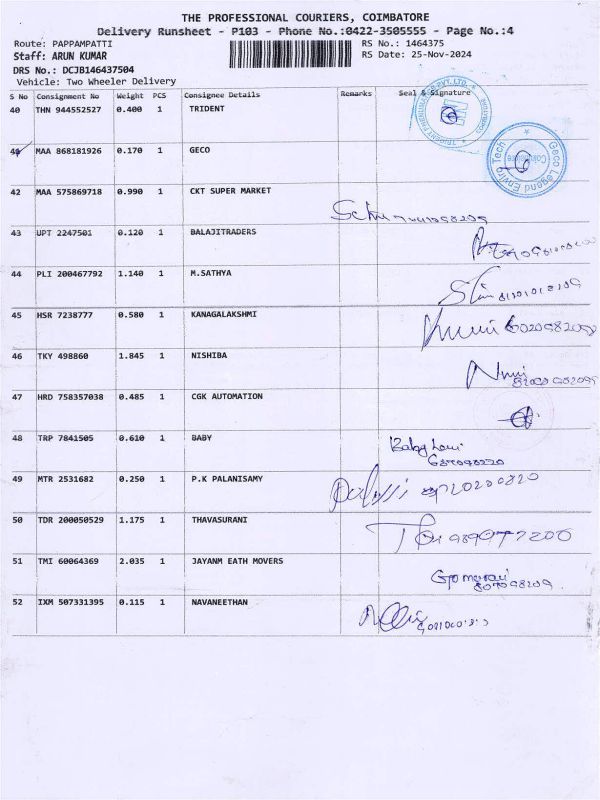 THE PROFESSIONAL COURIERS, COIMBATORE
Delivery Runsheet - P103 - Phone No.:0422-3505555 - Page No.:4
Route: PAPPAMPATTI RS No.: 1464375
Staff: ARUN KUMAR RS Date: 25-Nov-2024
DRS No.: DCJB146437504
Vehicle: Two Wheeler Delivery
S No Consignment No Weight PCS Consignee Details Remarks Seal & Signature
40 THN 944552527 0.400 1 TRIDENT
41 MAA 868181926 0.170 1 GECO
Geco Legend Enviro Tech
Coimbatore
42 MAA 575869718 0.990 1 CKT SUPER MARKET
43 UPT 2247501 0.120 1 BALAJITRADERS
44 PLI 200467792 1.140 1 M.SATHYA
45 HSR 7238777 0.580 1 KANAGALAKSHMI
46 TKY 498860 1.845 1 NISHIBA
47 HRD 758357038 0.485 1 CGK AUTOMATION
48 TRP 7841505 0.610 1 BABY
Baby
49 MTR 2531682 0.250 1 P.K PALANISAMY
50 TDR 200050529 1.175 1 THAVASURANI
51 TMI 60064369 2.035 1 JAYANM EATH MOVERS
52 IXM 507331395 0.115 1 NAVANEETHAN